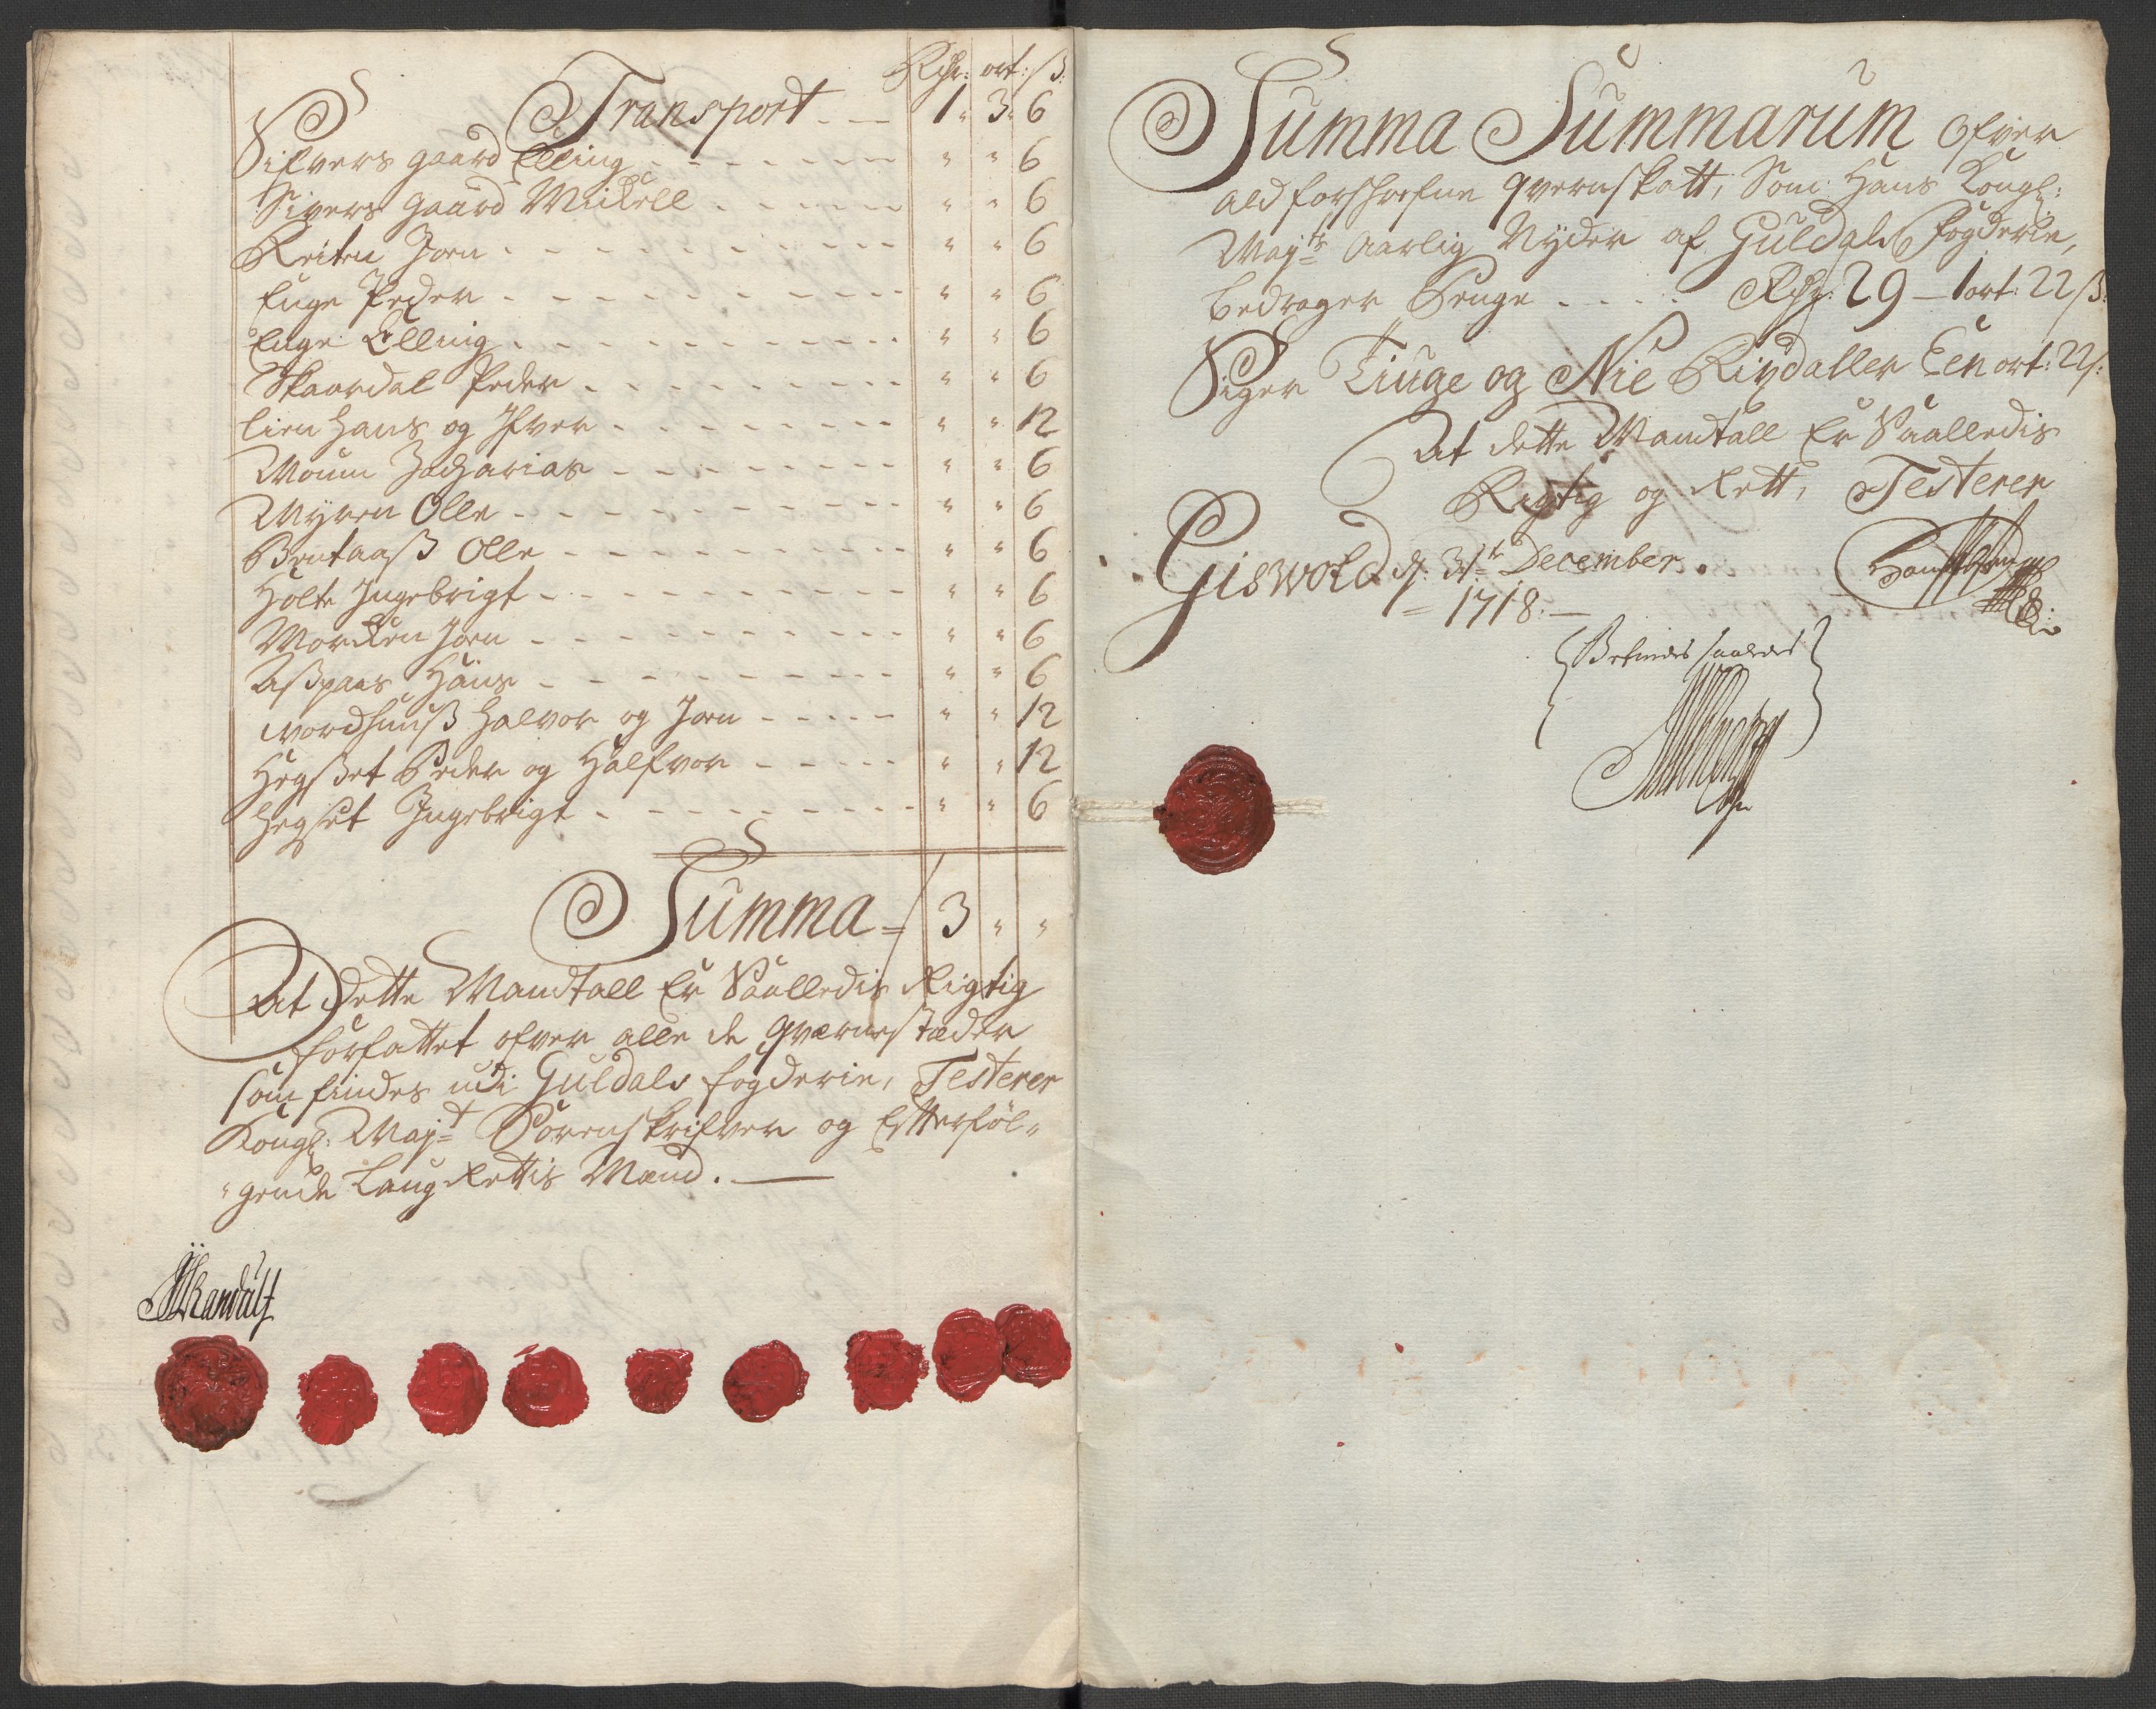 Rdr: ort: ß:
Transport - - 1 " 3 " 6
Sifvers gaard Elling - - - - - - - " " 6
Sivers gaard Mickell - - - - - " " 6
Reiten Joen - - - - - - - - - - " " 6
Enge Peder - - - - - - - - - - " " 6
Enge Elling - - - - - - - - - - " " 6
Skaardal Peder - - - - - - - - " " 6
Lien Hans og Ifver - - - - - - - - " " 12
Moum Zacharias - - - - - - - - " " 6
Myren Olle - - - - - - - - - - " " 6
Bentaaß Olle - - - - - - - - - " " 6
Holte Ingebrigt - - - - - - - - - " " 6
Morcken Joen - - - - - - - - - - " " 6
Aßpaas Hans - - - - - - - - - " " 6
Nordhuuß Halvor og Joen - - - - - " " 12
Hegßet Peder og Halfvor - - - - - " " 12
Hegset Ingebrigt - - - - - - - - " " 6
Summa = 3 " "
At Dette Mandtall Er Saalledis Rigtig
forfattet ofver alle de Qværnestæder
som findes udi Guldals fogderie, Testerer
Kongl: Maj:t Sorenskrifver og Efterføl-
-gende Laug Rettis Mænd. —
Summa Summarum Ofver
ald forschrefne Qvernskatt, Som Hans Kongl:
Maj:ts Aarlig Nyder af Guldals Fogderie,
bedrager Penge - - - - Rdr: 29 - 1 ort: 22 ß:
Siger Tiuge og Nie Rixdaller Een ort: 22 ß:
At dette Mandtall Er Saalledis
Rigtig og Rett, Testerer
Giswold d: 31:te December
= 1718: —
Befindes saaledes